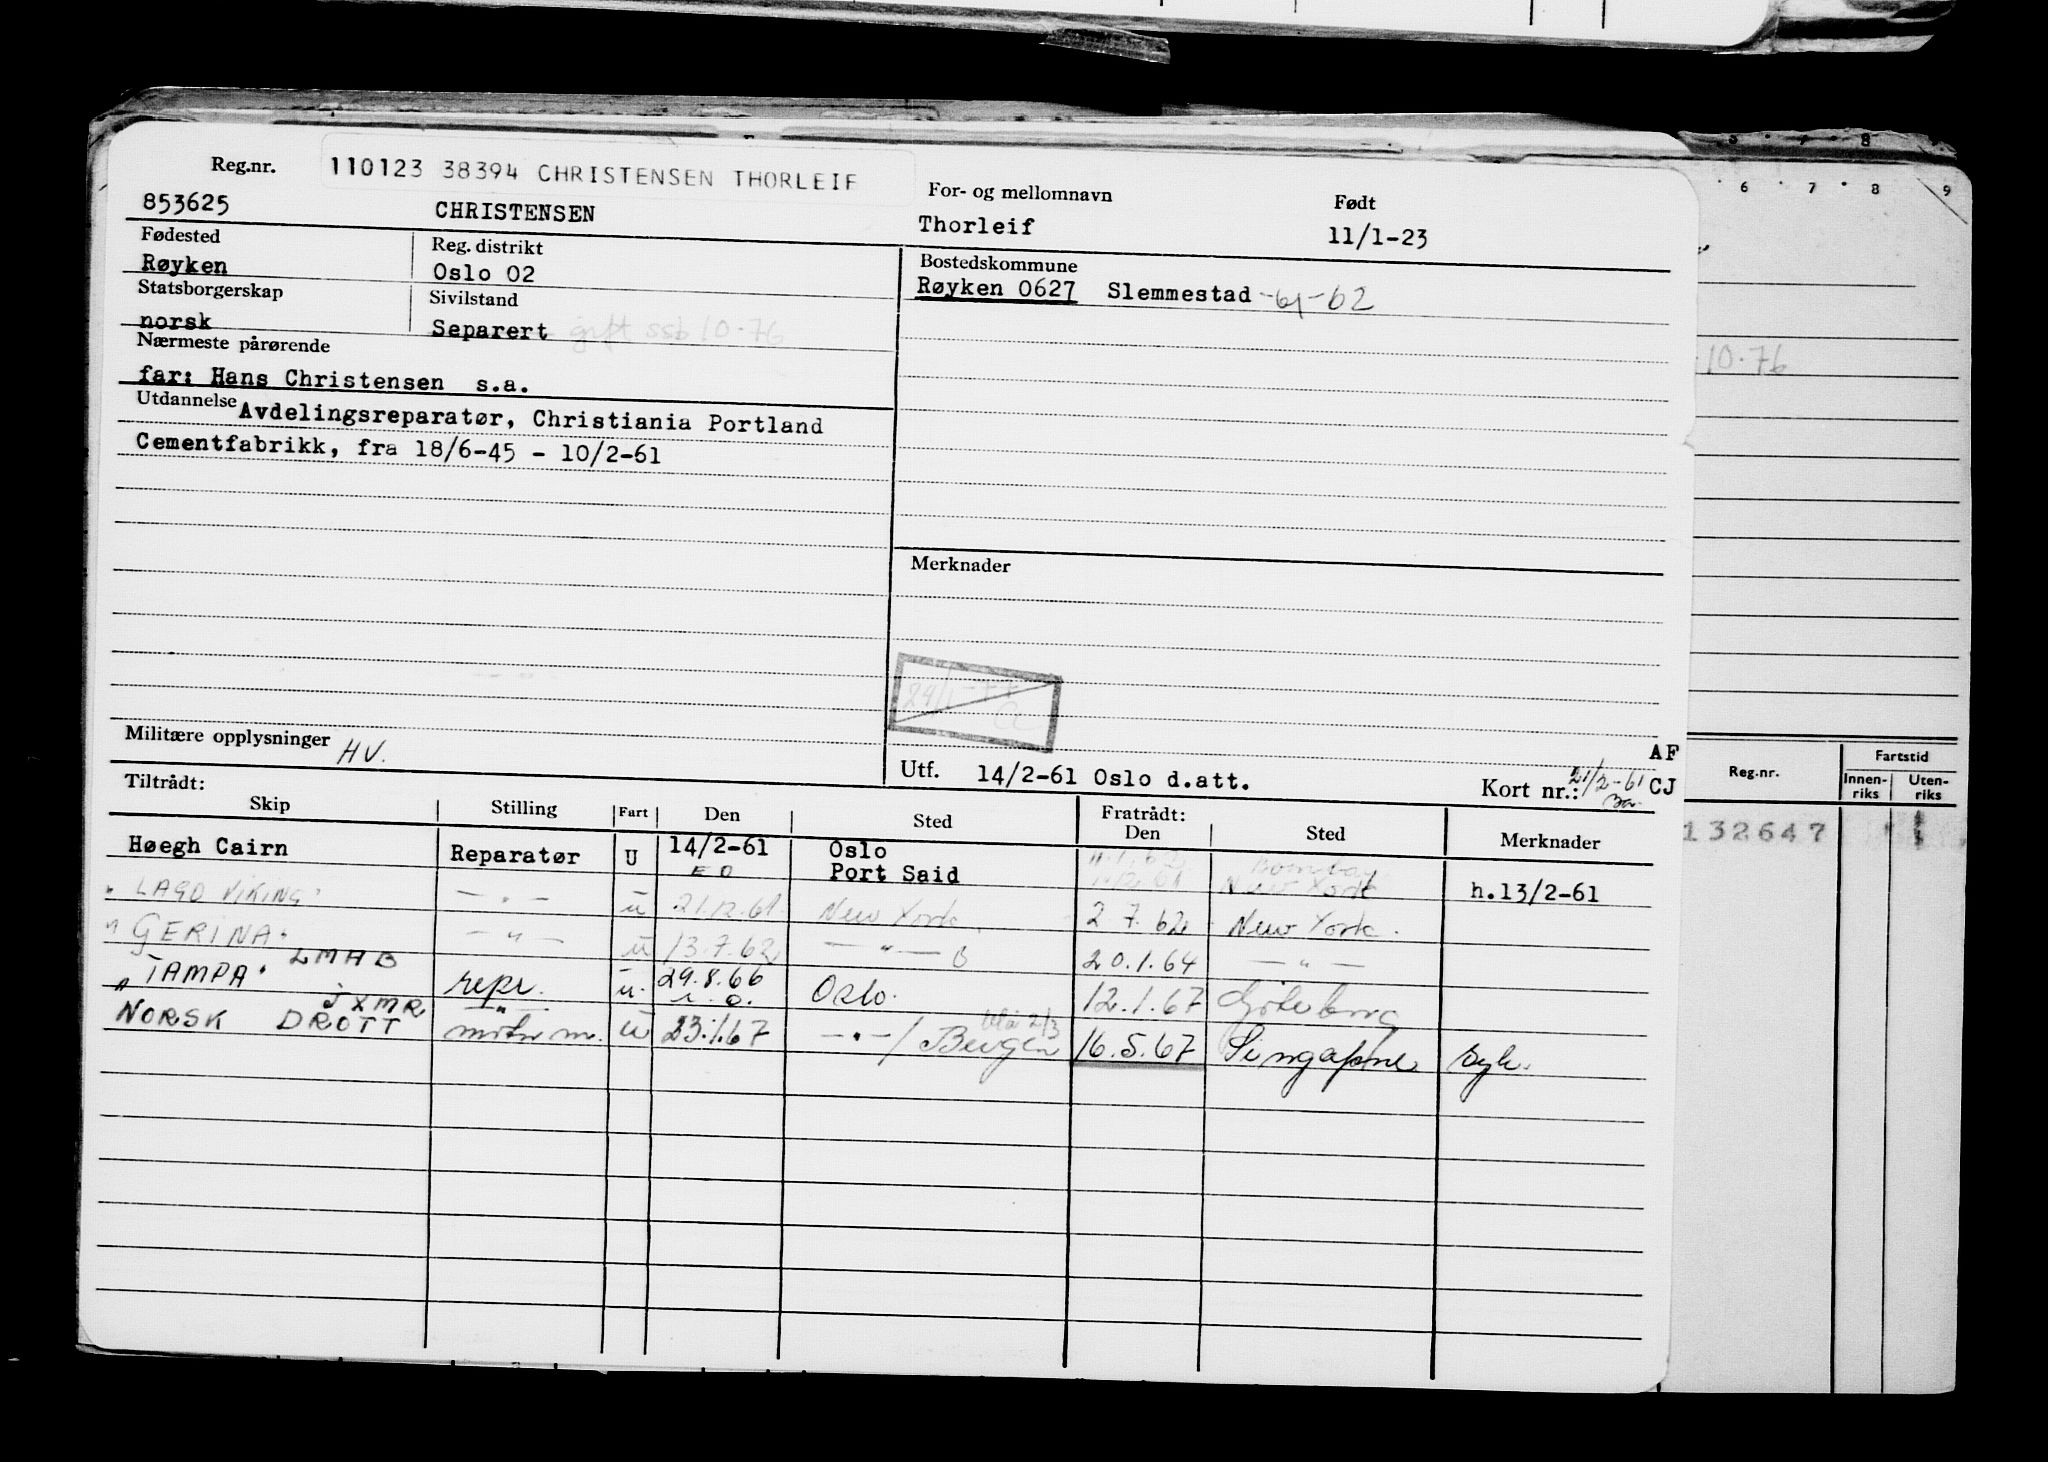 Reg.nr. 110123 38394 CHRISTENSEN THORLEIF
For- og mellomnavn Født
853625 CHRISTENSEN Thorleif 11/1-23
Fødested Reg. distrikt Bostedskommune
Røyken Oslo 02 Røyken 0627 Slemmestad -61-62
Statsborgerskap Sivilstand
norsk Separert gift ssb 10.76
Nærmeste pårørende
far: Hans Christensen s.a.
Utdannelse Avdelingsreparatør, Christiania Portland
Cementfabrikk, fra 18/6-45 - 10/2-61
Merknader
24/1-77
Militære opplysninger HV.
AF
Utf. 14/2-61 Oslo d.att. Kort nr.: 21/2-61 CJ
Tiltrådt: Fratrådt:
Skip Stilling Fart Den Sted Den Sted Merknader
Høegh Cairn Reparatør U 14/2-61 Oslo
Port Said New York h.13/2-61
"LAGO VIKING" — " — u 21.12.61 New York 2.7.62 New York.
"GERINA" — " — u 13.7.62 — " — 20.1.64 — " —
LMHB
"TAMPA" repr. u. 29.8.66 Oslo. 12.1.67 Göteborg
JXMR — " —
NORSK DROTT motorm. u 23.1.67 — " — / Bergen 16.5.67 Singapore syk.
10.76
5 7 8
6 7 8 9
Reg.nr. Fartstid
Innen-riks Uten-riks
132647